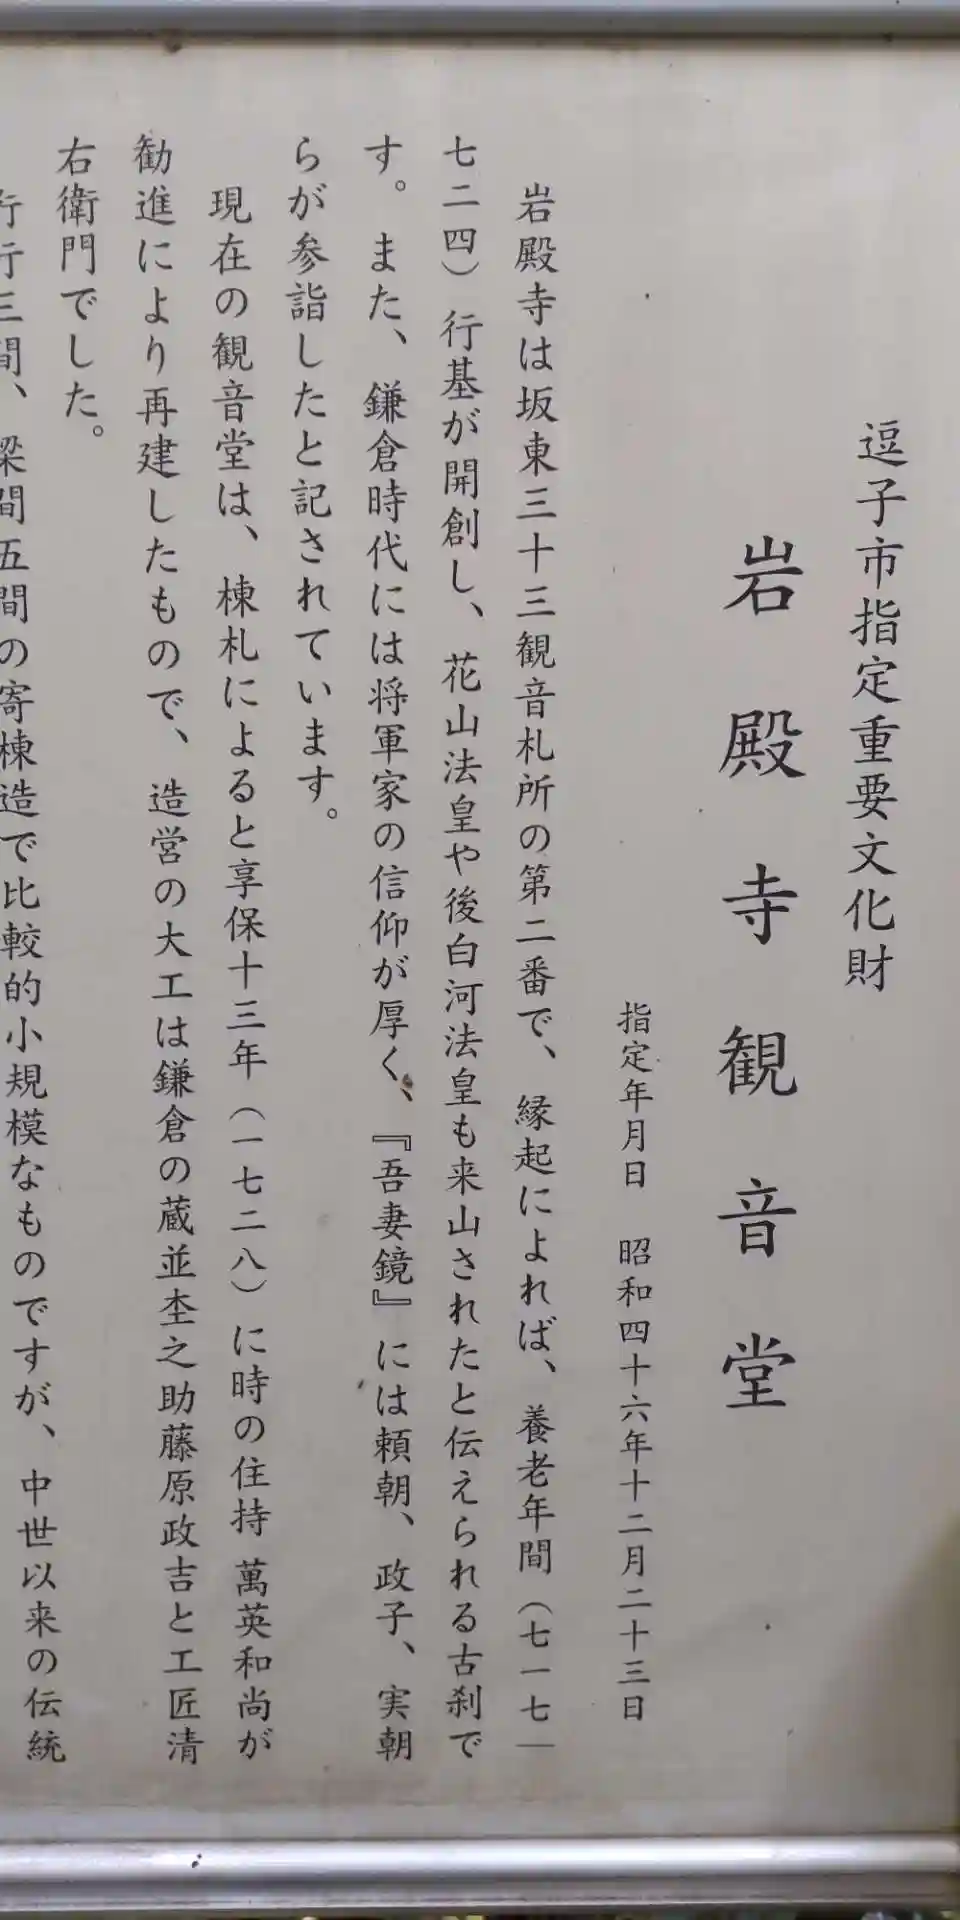 逗子市指定重要文化財
岩殿寺観音堂
指定年月日　昭和四十六年十二月二十三日
岩殿寺は坂東三十三観音札所の第二番で、縁起によれば、養老年間（七一七―
七二四）行基が開創し、花山法皇や後白河法皇も来山されたと伝えられる古刹で
す。また、鎌倉時代には将軍家の信仰が厚く、『吾妻鏡』には頼朝、政子、実朝
らが参詣したと記されています。
現在の観音堂は、棟札によると享保十三年（一七二八）に時の住持 萬英和尚が
勧進により再建したもので、造営の大工は鎌倉の蔵並杢之助藤原政吉と工匠清
右衛門でした。
行三間、梁間五間の寄棟造で比較的小規模なものですが、中世以来の伝統